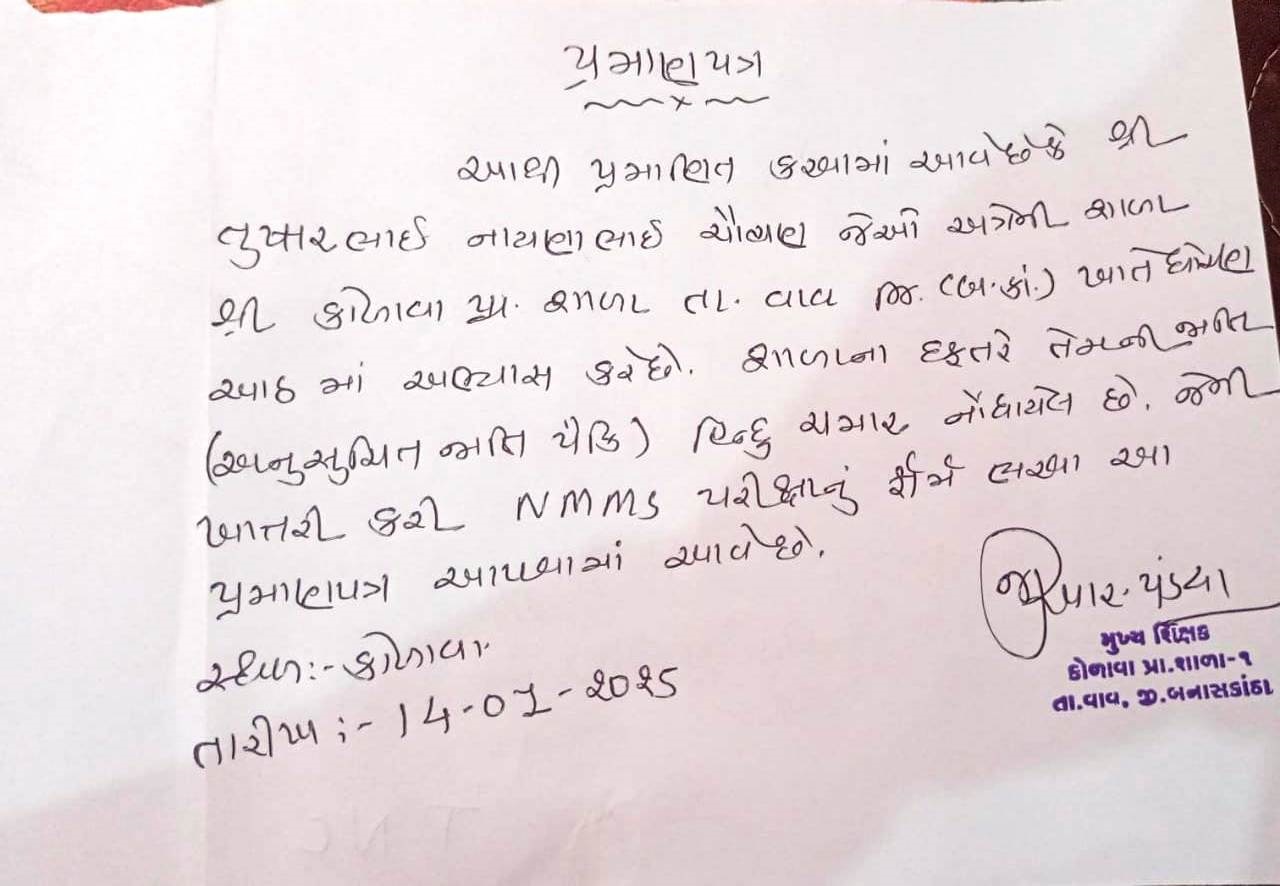 પ્રમાણપત્ર
આથી પ્રમાણિત કરવામાં આવે છે કે શ્રી
તુષારભાઈ નારણભાઈ ચૌહાણ જેઓ અત્રેની શાળા
શ્રી કોળાવા પ્રા. શાળા તા. વાવ જિ. (બ.કાં.) ખાતે ધોરણ
આઠ માં અભ્યાસ કરે છે. શાળાના દફતરે તેમની જાતિ
(અનુસુચિત જાતિ પૈકિ) હિન્દુ ચમાર નોંધાયેલ છે. જેની
ખાતરી કરી NMMS પરીક્ષાનું ફોર્મ ભરવા આ
પ્રમાણપત્ર આપવામાં આવે છે.
સ્થળ:- કોળાવા
તારીખ :- 14-01-2025
પંડ્યા
મુખ્ય શિક્ષક
કોળાવા પ્રા.શાળા-૧
તા.વાવ, જી.બનાસકાંઠા